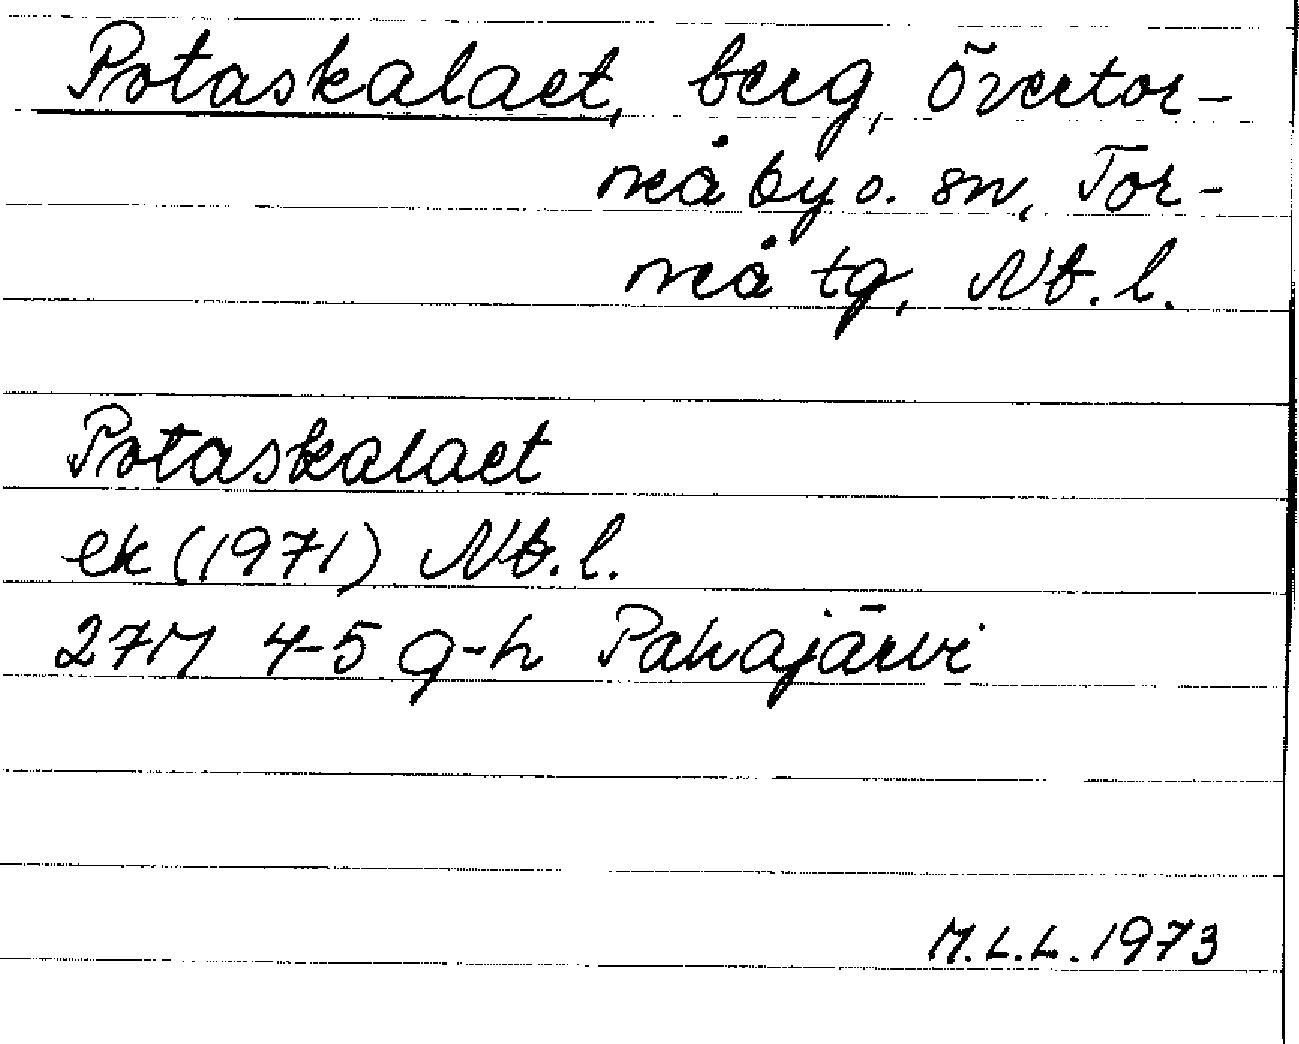 Potaskalaet, berg, Övertor-
neå by o. sn, Tor-
neå tg, Nb. l.
Potaskalaet
ek (1971) Nb. l.
27M 4-5 g-h Pahajärvi
M.L.L. 1973